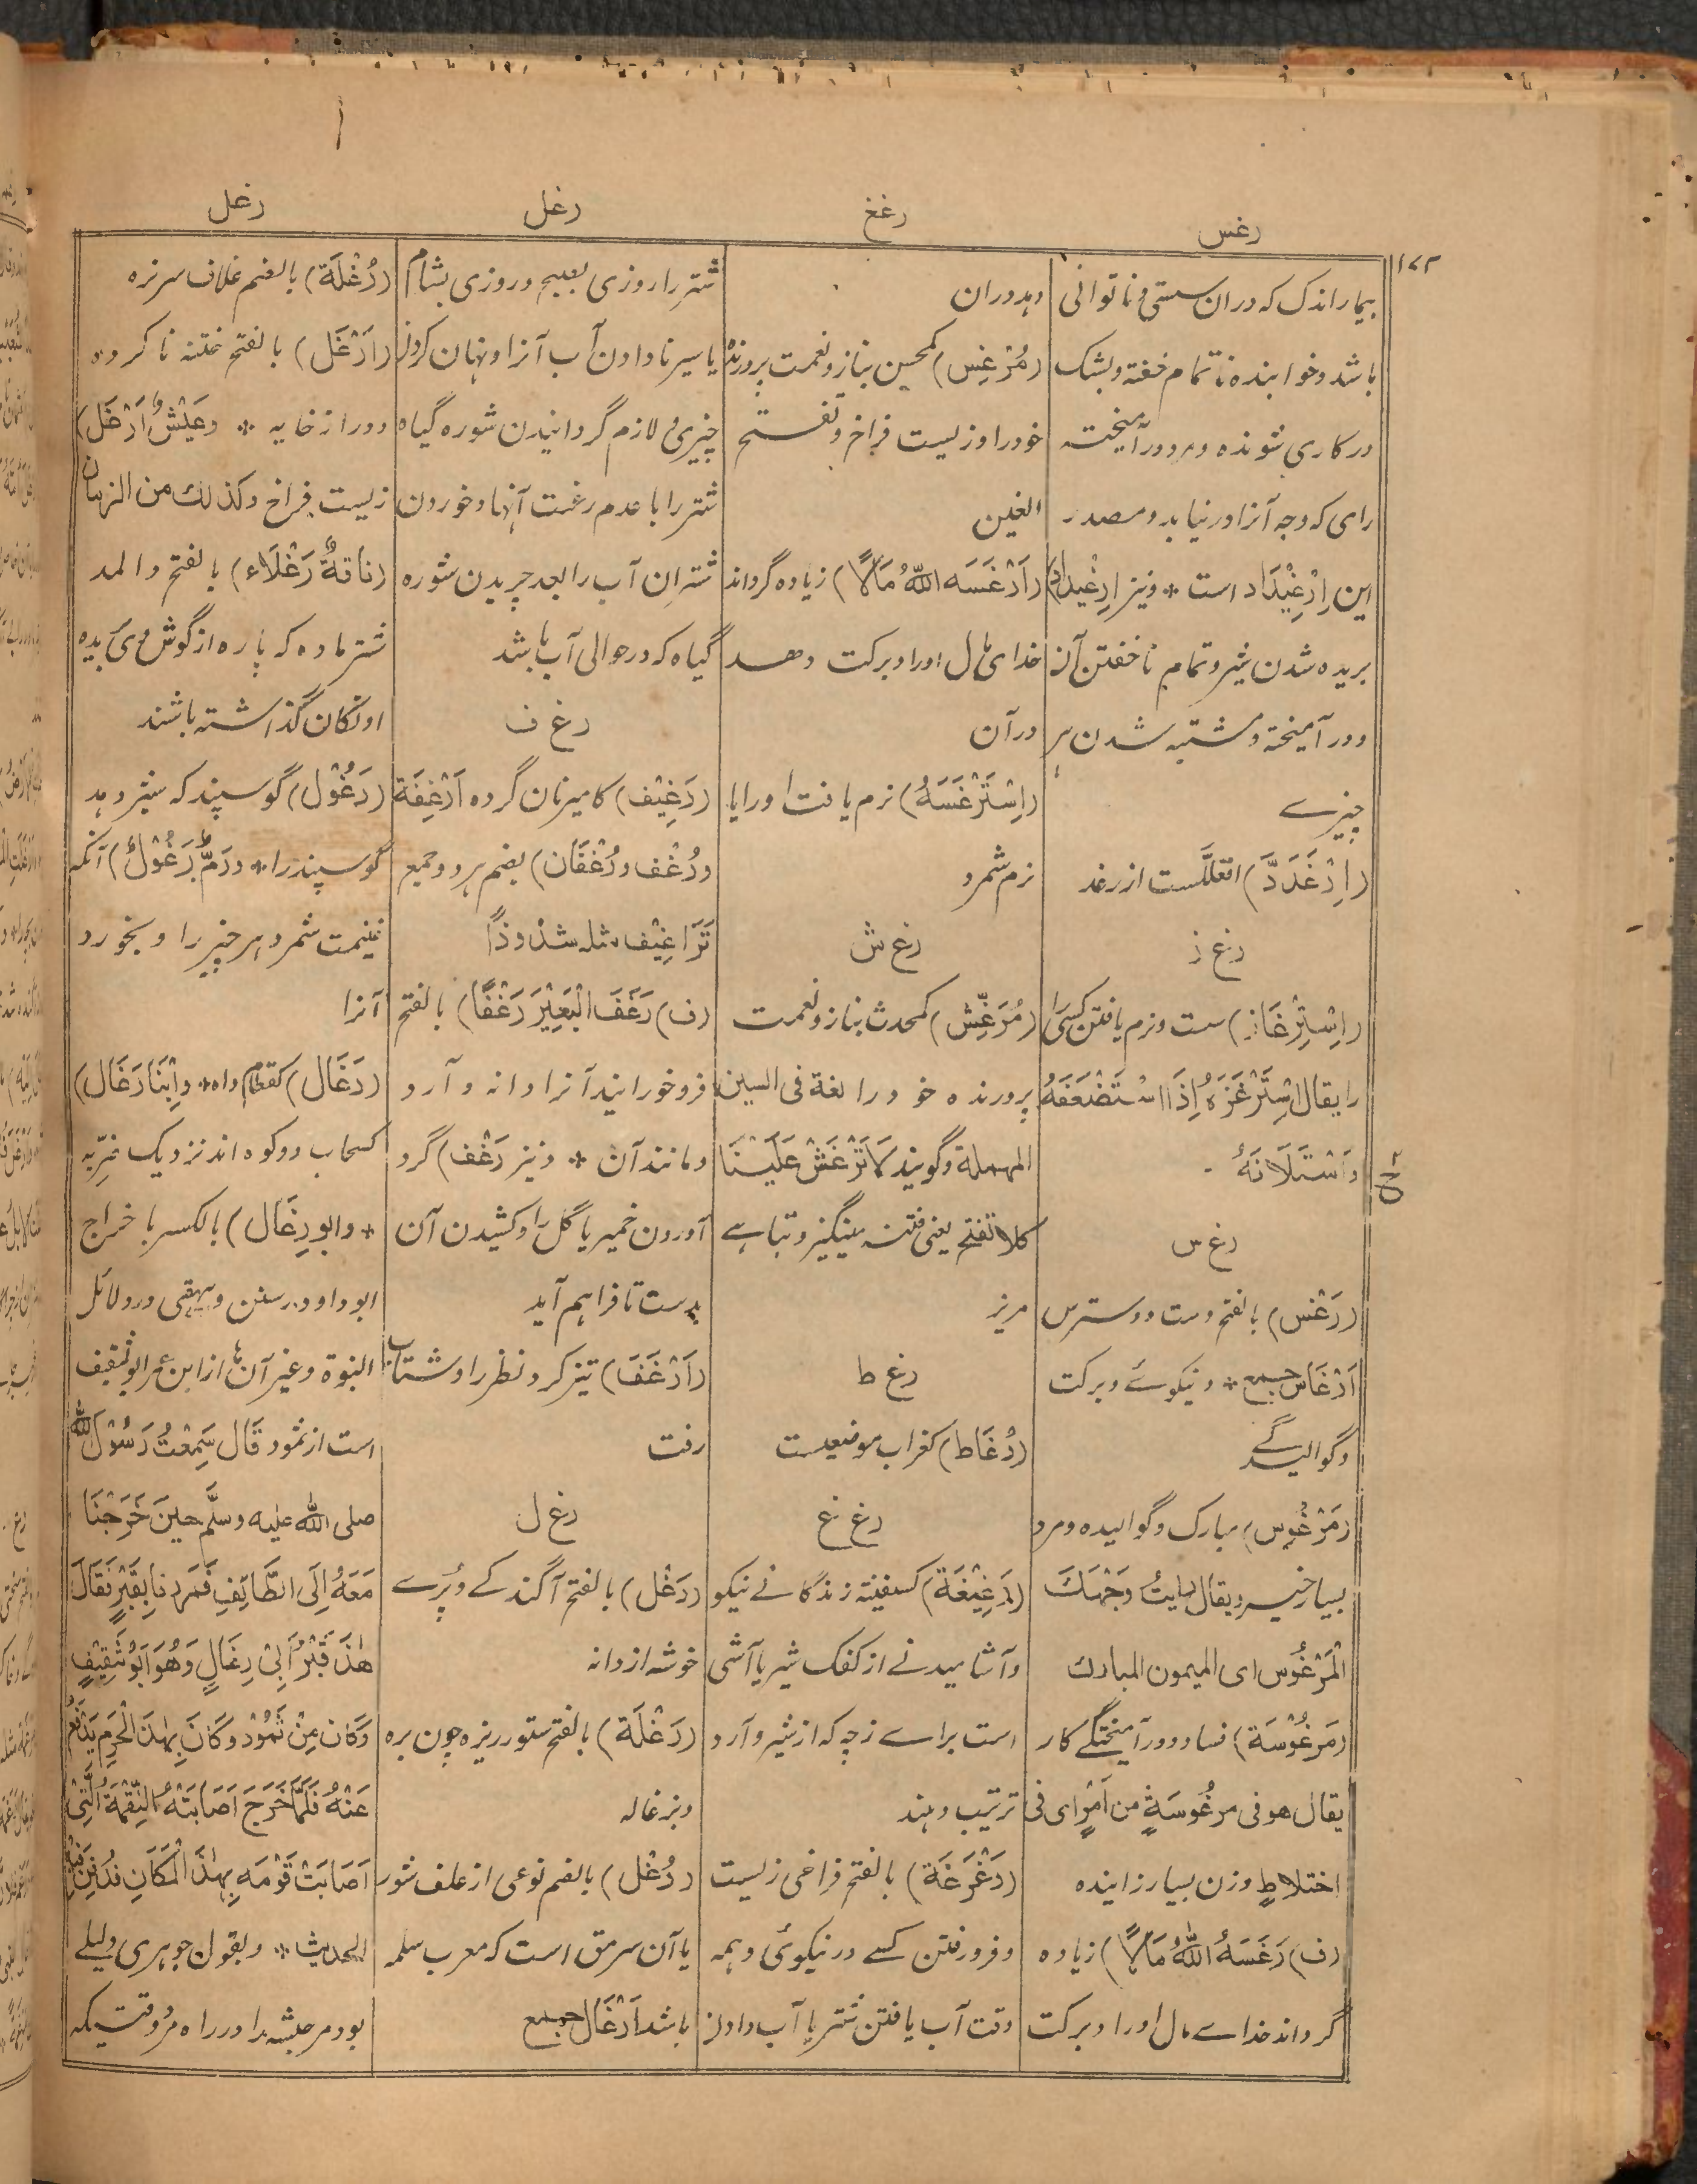 رغس
رغغ
رغل
رغل
۱۷۲
بیمار اندک که دران سستی و ناتوانی
باشد و خوابنده ناتمام خفته و بشک
در کاری شونده و مرد در آمیخته
رای که وجه آنرا در نیابد و مصدر
این اِرْغِیْدَاد است * و نیز اِرْغِیْدَاد)
بریده شدن شیر و تمام ناخفتن آن
و در آمیخته و مشتبه شدن هر
چیزے
(اِرْغَدَدَّ) افعللَّست از رغد
رغ ز
(اِسْتِرْغَاز) سست و نرم یافتن کسی را
یقال اِسْتَرْغَزَهُ اِذَا اسْتَضْعَفَهُ
وَاسْتَلَانَهُ
رغ س
(رَغْس) بالفتح دست و دسترس
اَرْغَاس جمع * و نیکوئے و برکت
و گوالیدگے
(مَرْغُوس) مبارک و گوالیده و مرد
بسیار خیر و یقال رایتُ وَجْهَكَ
الْمَرْغُوس ای المیمون المبارك
(مَرْغُوْسَة) فساد و در آمیختگے کار
یقال هو فی مرغُوسَةٍ من اَمْرٍ ای فی
اختلاطٍ و زن بسیار زاینده
(ف) رَغَسَهُ اللّٰهُ مَالًا) زیاده
گرداند خداے مال اورا و برکت
دهد دران
(مُرْغِس) کمحسن بناز و نعمت پرورنده
خود را و زیست فراخ و تفتح
الغین
(اَرْغَسَه اللّٰهُ مَالًا) زیاده گرداند
خدای مال اورا و برکت دهد
در آن
(اِسْتَرْغَسَهُ) نرم یافت اورا یا
نرم شمرد
رغ ش
(مُرَغِّش) کمحدث بناز و نعمت
پرورنده خود را لغة فی السین
المهملة و گویند لَا تَرْغَشْ عَلَیْنَا
کلا تفتح یعنی فتنه مینگیز و تباہے
مریز
رغ ط
(رُغَاط) کغراب موضعیست
رغ غ
(رَغِیْغَة) کسفینة زندگانے نیکو
و آشامیدنے از کفک شیر یا آشی
است براے زچه که از شیر و آرد
ترتیب دهند
(رَغْرَغَة) بالفتح فراخی زیست
و فرو رفتن کسے در نیکوئی و همه
وقت آب یافتن شتر یا آب دادن
شتر را روزی بصبح و روزی بشام
یا سیر نا دادن آب آنرا و نهان کردن
چیزی و لازم گردانیدن شوره گیاه
شتر را با عدم رغبت آنها و خوردن
شتران آب را بعد چریدن شوره
گیاه که در حوالی آب باشد
رغ ف
(رَغِیْف) کامیر نان گرده اَرْغِفَة
و رُغْف و رُغْفَان) بضم هر دو جمع
تَرَاغِیْف مثله شذوذاً
(ف) رَغَفَ الْبَعِیْرَ رَغْفًا) بالفتح
فرو خورانید آنرا دانه و آرد
و مانند آن * و نیز رَغْف) گرد
آوردن خمیر یا گل را و کشیدن آن
بدست تا فراهم آید
(اَرْغَفَ) تیز کرد نظر را و شتاب
رفت
رغ ل
(رَغْل) بالفتح آگندگے و پُرے
خوشه از دانه
(رَغْلَة) بالفتح ستور ریزه چون بره
و بزغاله
(رُغْل) بالضم نوعی از علف شور
یا آن سرمق است که معرب سلمه
باشد اَرْغَال جمع
(رُغْلَة) بالضم غلاف سر نره
(اَرْغَل) بالفتح ختنه نا کرده
و دراز خایه * وعَیْشٌ اَرْغَل)
زیست فراخ وکذلك من الزمان
(نَاقَةٌ رَغْلَاء) بالفتح و المد
شتر ماده که پاره از گوش وی بریده
اونگان گذاشته باشند
(رَغُوْل) گوسپند که شیر دهد
گوسپند را * و رَمٌّ رَغُوْلٌ) آنکه
غنیمت شمرد هر چیز را و بخورد
آنرا
(رَغَال) کقطام داه * و اِبْنَا رَغَال)
کسحاب دو کوه اند نزدیک ضریّه
* و ابو رِغَال) بالکسر با خراج
ابو داود در سنن و بیهقی در دلائل
النبوة و غیر آن ها از ابن عمر ابو ثقیف
است از ثمود قَالَ سَمِعْتُ رَسُوْلَ اللّٰه
صلی الله علیه وسلَّم حینَ خَرَجْنَا
مَعَهُ اِلَی الطَّایِفِ فَمَرَرْنَا بِقَبْرٍ فَقَالَ
هٰذَ قَبْرُ اَبِیْ رِغَالٍ وَهُوَ اَبُوْ ثَقِیْفٍ
وَکَانَ مِنْ ثَمُوْدَ وَکَانَ بِهٰذَ الْحَرَمِ یَدْفَعُ
عَنْهُ فَلَمَّا خَرَجَ اَصَابَتْهُ النِّقْمَةُ الَّتِیْ
اَصَابَتْ قَوْمَهِ بِهٰذَ الْمَکَانِ فَدُفِنَ فِیْهِ
الحدیث * و بقول جوهری دلیلے
بود مر حبشه را در راه مُرد وقتیکه